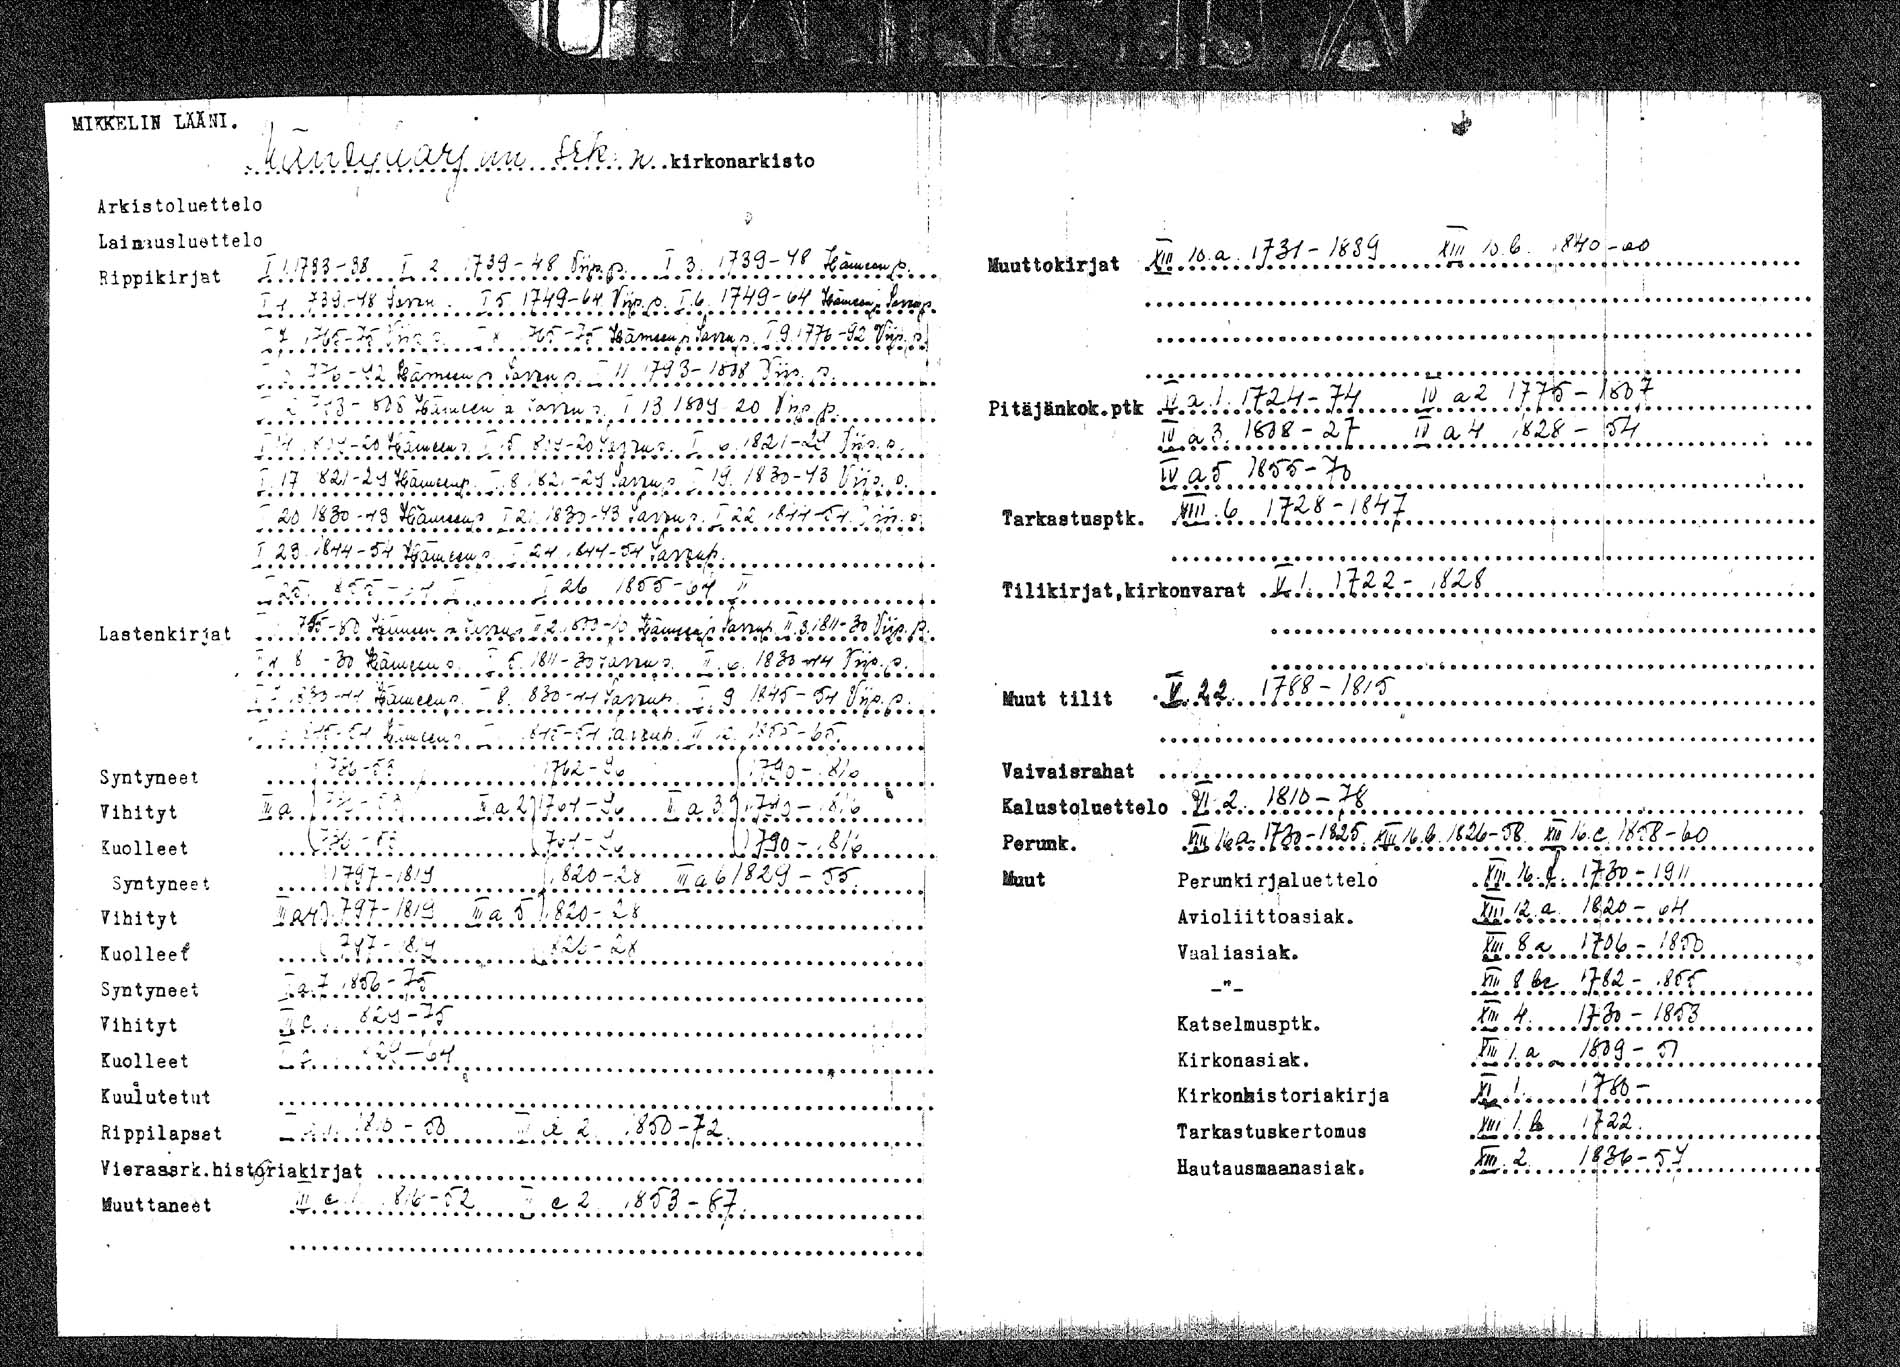 MIKKELIN LÄÄNI.
Mäntyharjun srk:n kirkonarkisto
Arkistoluettelo
Lainausluettelo
Rippikirjat I 1. 1733-38 I 2 1739-48 Viip.p. I 3. 1739-48 Hämeen p.
I 4 739-48 Savon I 5. 1749-64 Viip.p. I 6. 1749-64 Hämeen p Savon p.
I 7 1765-75 Viip.p. I 8 765-75 Hämeen p Savon p. I 9. 1776-92 Viip.p.
776-92 Hämeen p Savon p. I 11 1793-1808 Viip.p.
793-808 Hämeen p Savon p. I 13 1809-20 Viip.p.
I 14 819-20 Hämeen p. I 15 819-20 Savon p. I 6. 1821-29 Viip.p.
I 17 821-29 Hämeen p. I 8 1821-29 Savon p I 19. 1830-43 Viip.p.
I 20 1830-43 Hämeen p I 21 1830-43 Savon p. I 22 1844-54 Viip.p.
I 23 1844-54 Hämeen p. I 24 1844-54 Savon p.
I 25. 855- I I 26 1855-64 II
Lastenkirjat Hämeen p Savon p II 2. Hämeen p Savon p II 3. 1811-30 Viip.p.
-30 Hämeen p. 5. 1811-30 Savon p. II 6. 1830-44 Viip.p.
830-44 Hämeen p. 8. 830-44 Savon p. 9 1845-54 Viip.p.
845-54 Hämeen p 845-54 Savon p. II 12. 1855-65.
Syntyneet 736-58 1762-96 1790-816
Vihityt III a III a 2 1764-96 III a 3 1790-1816
Kuolleet 736-58 764-96 1790-816
Syntyneet 1797-1819 1820-28 III a 6 1829-55.
Vihityt III a 4 1797-1819 III a 5 1820-28
Kuolleet 797-1819 820-28
Syntyneet a 7 1856-75
Vihityt 829-75
Kuolleet 829-64
Kuulutetut
Rippilapset 1810-50 2 1850-72.
Vierassrk.historiakirjat
Muuttaneet III c 1. 1816-52 c 2 1853-87.
Muuttokirjat XIII 10.a. 1731-1839 XIII 10.b. 1840-60
Pitäjänkok.ptk IV a.1. 1724-74 IV a 2 1775-1807
IV a 3. 1808-27 IV a 4 1828-54
IV a 5 1855-70
Tarkastusptk. XIII.6 1728-1847
Tilikirjat,kirkonvarat V 1. 1722-1828
Muut tilit V.22. 1788-1815
Vaivaisrahat
Kalustoluettelo VI.2. 1810-78
Perunk. XIII 16.a. 1730-1825. XIII 16.b. 1826-58. XIII 16.c. 1858-60
Muut Perunkirjaluettelo XIII.16.d. 1730-1911
Avioliittoasiak. XIII 12.a. 1820-64
Vaaliasiak. XIII 8 a 1706-1850
-"- XIII 8 1782-1855
Katselmusptk. XIII 4. 1730-1853
Kirkonasiak. XIII 1.a 1809-51
Kirkonhistoriakirja XI 1. 1780-
Tarkastuskertomus XIII 1.b 1722.
Hautausmaanasiak. XIII.2. 1836-57